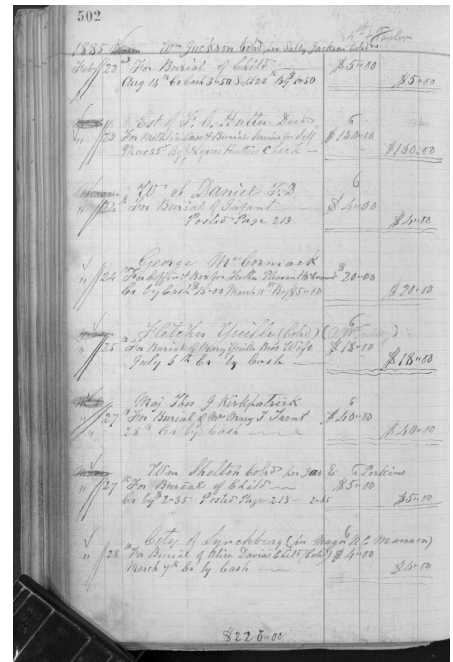 502
1885 Wm Jackson Cold, for Sally Jackson Cold
Feby 22nd For Burial of Child $5"00
Aug 14th Cr Cash 3"50 Sept 26th By 1"50 $5"00
Est of Hutter Decd 6
" 23 For Metallic Case & Burial Services for Self $130"00
Cheek $130"00
W S Daniel 6
" 24th For Burial of Infant $4"00
Posted Page 213 $4"00
George McCormack
" 24 For Coffin & Box for Father Pleasant McCormack $20"00
Cr by Cash $15"00 March 11th By $5"00 $20"00
Fletcher (Cold) 6
" 25 For Burial of Mary Wife $18"00
July 6th Cr by Cash $18"00
Maj Thos J Kirkpatrick 6
" 27 For Burial of Mrs Mary T Trent $40"00
28th Cr by Cash $40"00
Wm Shelton Cold per Jas E Perkins
" 27th For Burial of Child $5"00
Cr by 2"35 Posted Page 213 2"65 $5"00
City of Lynchburg (per Mayor N C Manson) 6
" 28th For Burial of Alice Davis Child (Cold) $4"00
March 7th Cr by Cash $4"00
$226"00